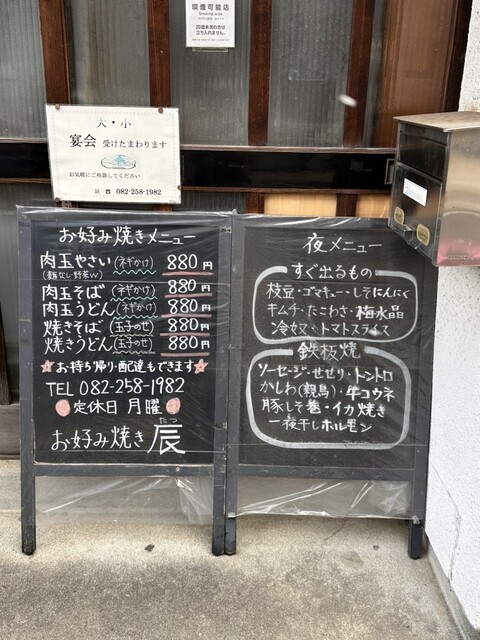 喫煙可能店
Smoking area
20歳未満の方は
立ち入れません。
大・小
宴会 受けたまわります
お気軽にご相談してください
☎ 082-258-1982
お好み焼きメニュー
肉玉やさい(ネギかけ) 880円
(麺なし・野菜W)
肉玉そば(ネギかけ) 880円
肉玉うどん(ネギかけ) 880円
焼きそば(玉子のせ) 880円
焼きうどん(玉子のせ) 880円
★お持ち帰り・配達もできます★
TEL 082-258-1982
定休日 月曜
たつ
お好み焼き 辰
夜メニュー
すぐ出るもの
枝豆・ゴマキュー・しそにんにく
キムチ・たこわさ・梅水晶
冷奴・トマトスライス
鉄板焼
ソーセージ・せせり・トントロ
かしわ(親鳥)・牛コウネ
豚しそ巻・イカ焼き
一夜干しホルモン